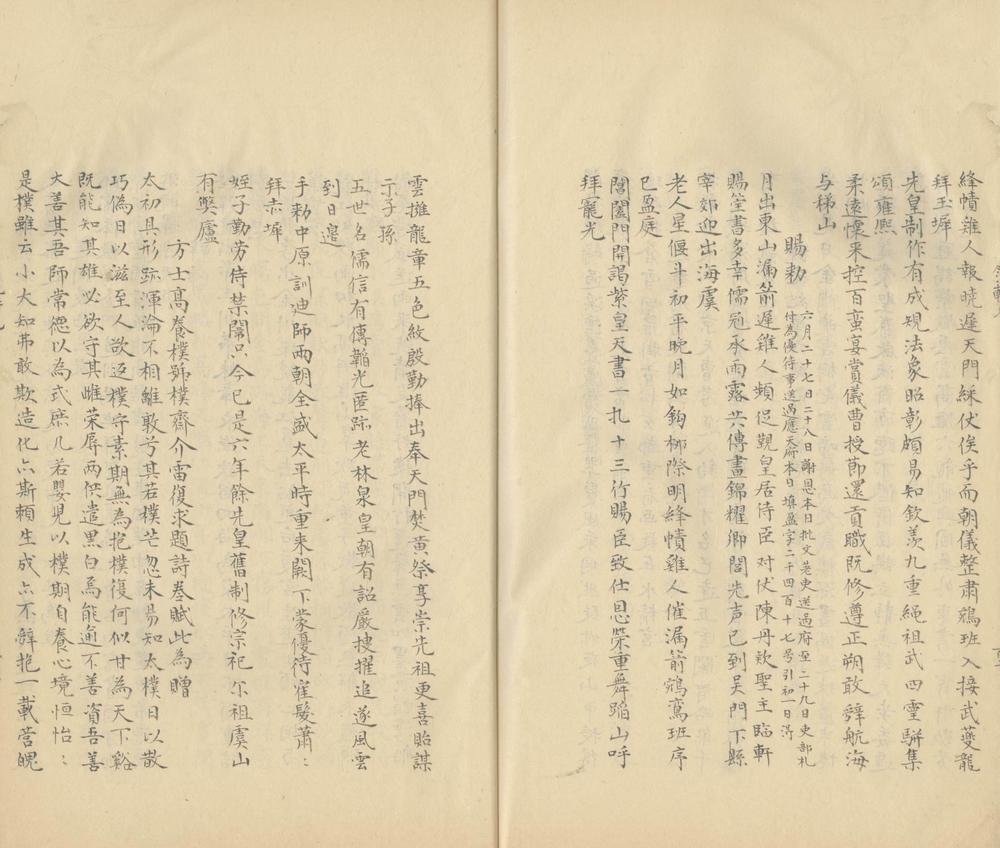 絳幘雞人報曉遲天門綵伏俟乎而朝儀整肅鵷班入接武夔龍
拜玉墀
先皇制作有成規法象昭彰頗易知欽羨九重繩祖武四靈駢集
頌雍熙
柔遠懷来控百蛮宴賞儀曹授節還貢職既修遵正朔敢辞航海
与梯山
賜勑 六月二十七日二十八日謝恩本日批文老吏送過府至二十九日吏部札
付為優待事送過應天府本日填盈字二千四百十七号引初一日済
月出東山漏箭遲雞人頻促觀皇居侍臣対伏陳丹欵聖主臨軒
賜璽書多幸儒冠承雨露共傳晝錦耀鄉閭光声已到吴門下縣
宰郊迎出海虞
老人星偃斗初平晚月如鈎栁際明絳幘雞人催漏箭鵷鸞班序
已盈庭
閶闔門開謁紫皇天書一札十三行賜臣致仕恩荣重舞蹈山呼
拜寵光
雲擁龍章五色紋殷勤捧出奉天門焚黄祭享崇先祖更喜貽謀
示子孫
五世名儒信有傳韜光匿跡老林泉皇朝有詔嚴搜擢追逐風雲
到日邉
手勑中原訓迪師兩朝全盛太平時重来闕下蒙優待寉髮蕭〻
拜赤墀
姪子勤劳侍禁闈只今已是六年餘先皇舊制修宗祀尔祖虞山
有獘廬
方士高養樸號樸齋介雷復求題詩卷賦此為贈
太初具形跡渾淪不相離敦兮其若樸芒忽未易知太樸日以散
巧偽日以滋至人欲返樸守素期無為抱樸復何似甘為天下谿
既能知其雄必欲守其雌荣辱兩俱遣黒白焉能逾不善資吾善
大善其吾師常德以為式庶几若嬰児以樸期自養心境恒怡〻
是樸雖云小大知弗敢欺造化亦斯頼生成亦不辭抱一載营魄